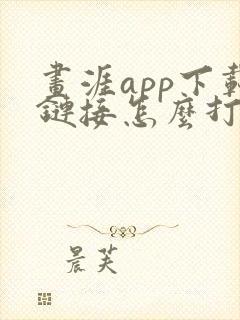 畫涯app下載
鏈接怎麼打
晨芙